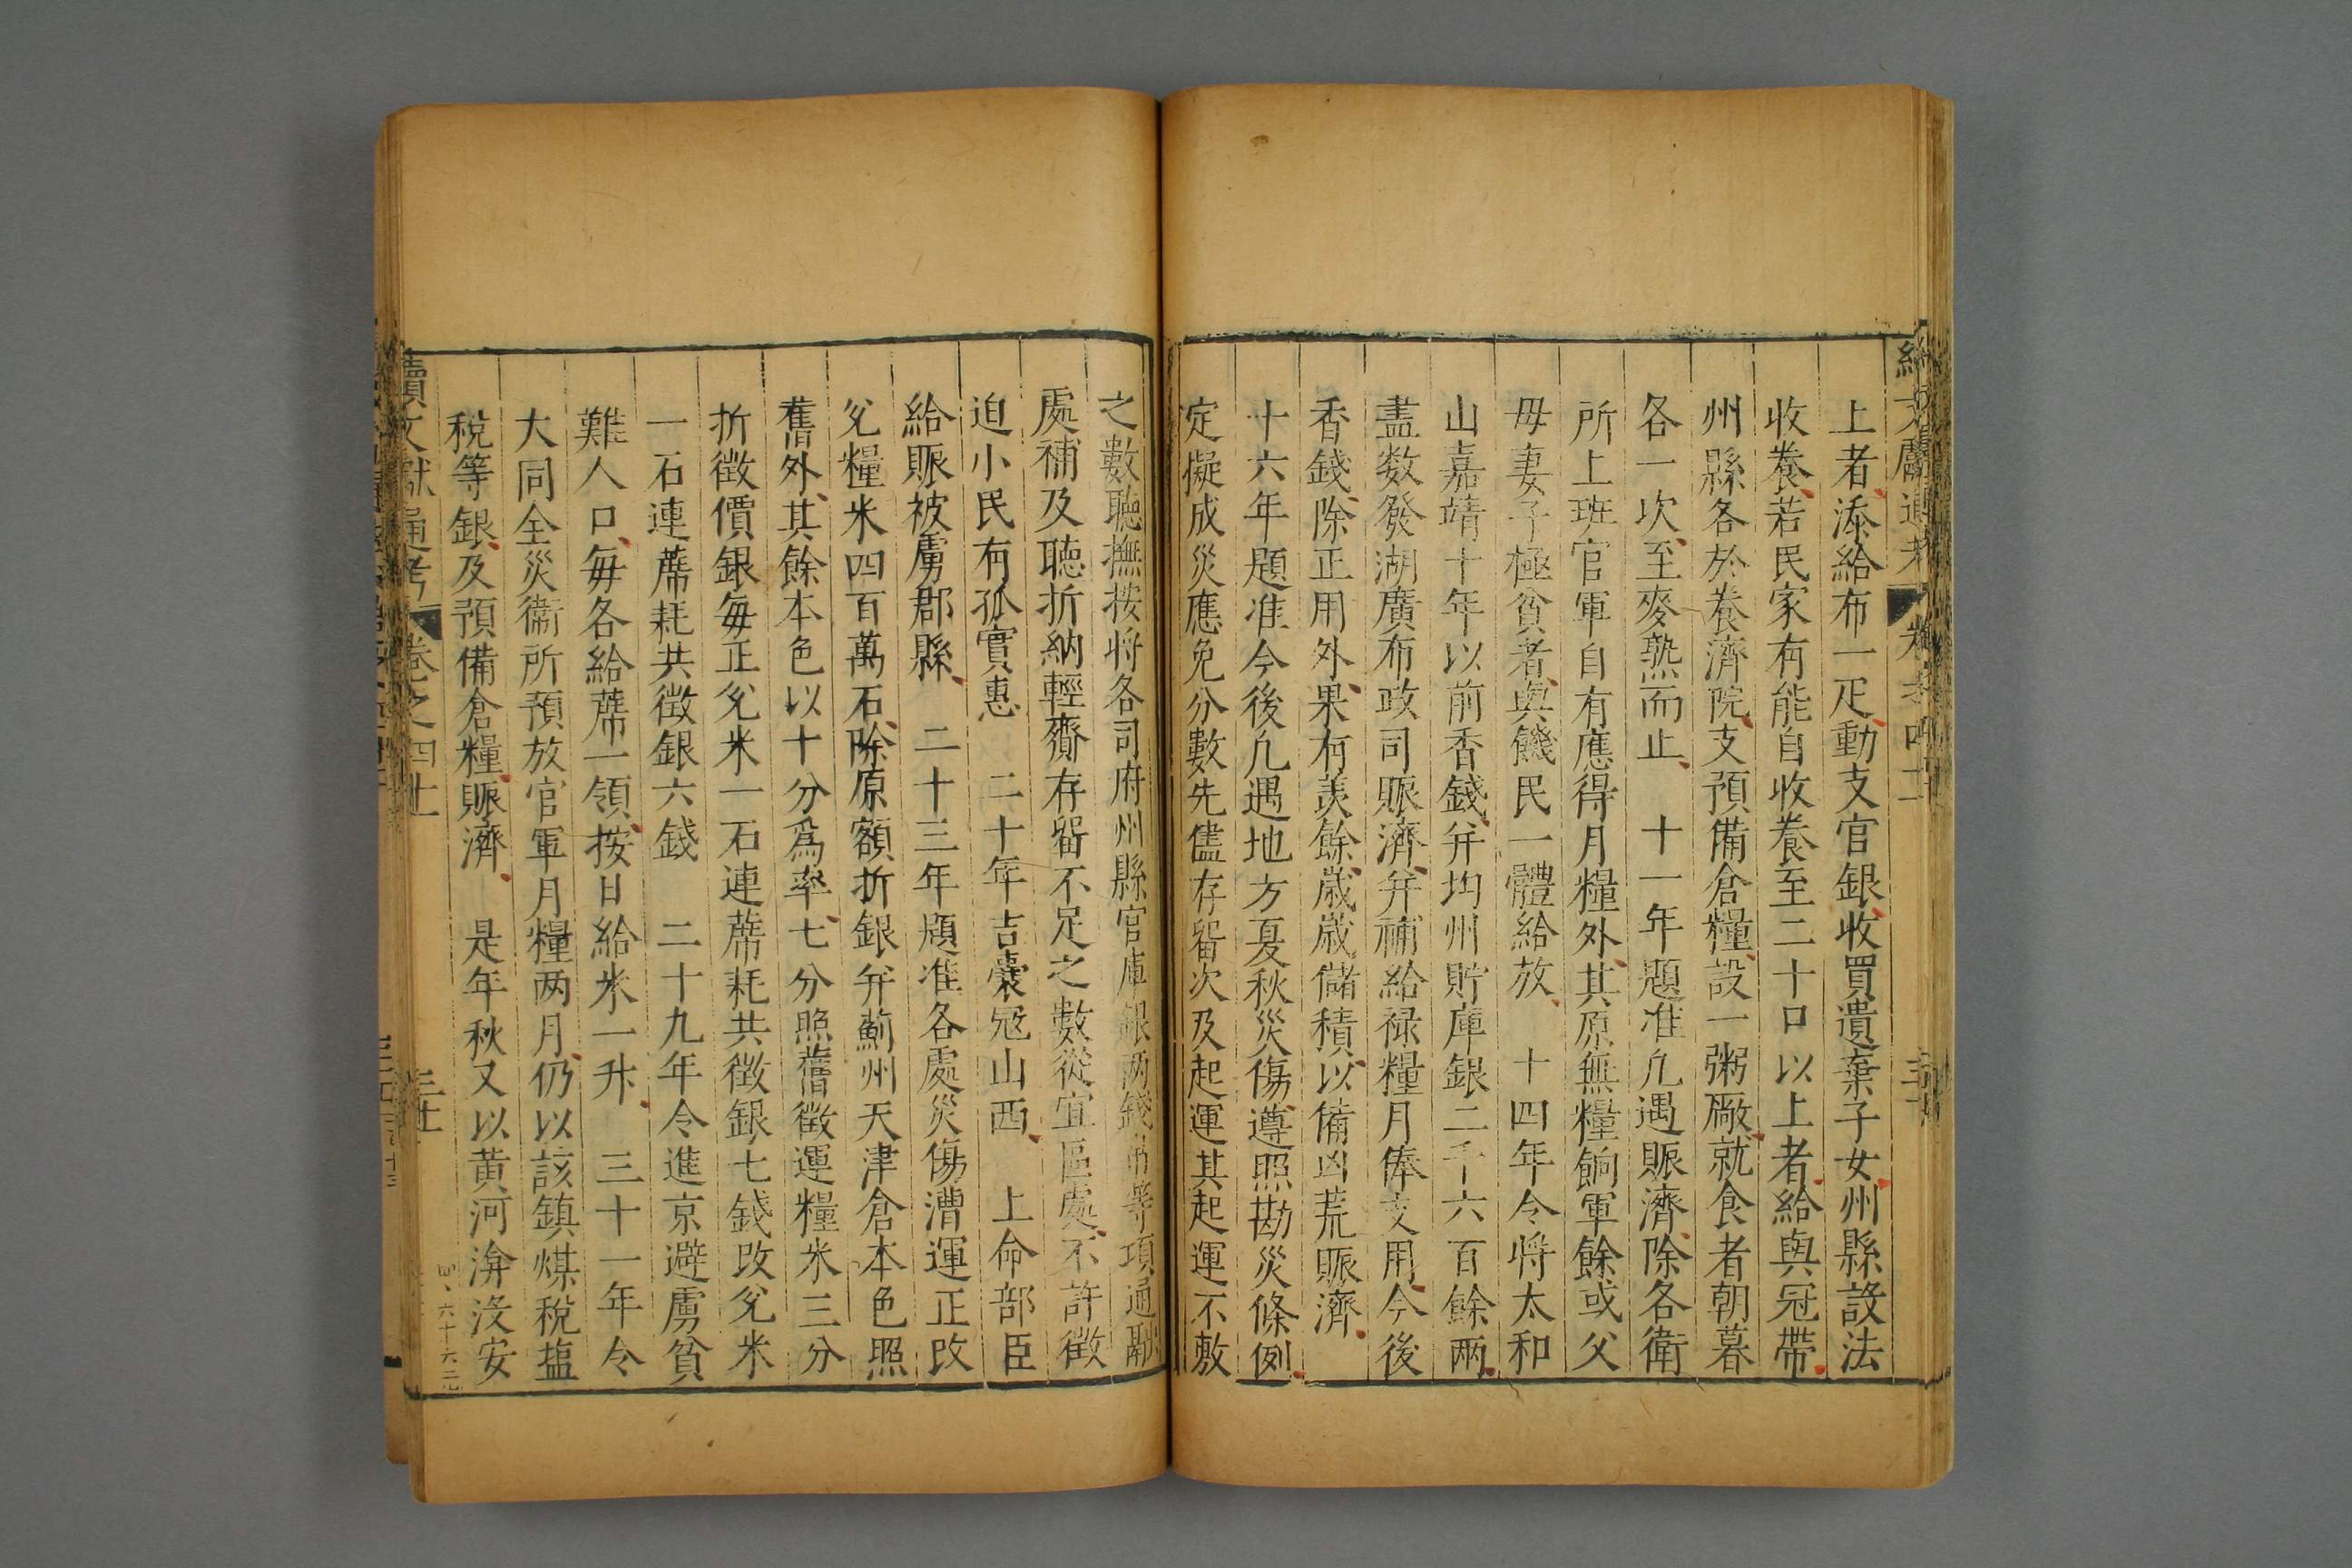 上者添給布一疋動支官銀收買遺棄子女州縣設法
收養若民家有能自收養至二十口以上者給與冠帶
州縣各於養濟院支預備倉糧設一粥廠就食者朝暮
各一次至麥熟而止 十一年題准凢遇賑濟除各衛
所上班官軍自有應得月糧外其原無糧餉軍餘或父
毋妻子極貧者與饑民一體給放 十四年令将太和
山嘉靖十年以前香錢并均州貯庫銀二千六百餘兩
盡数發湖廣布政司賑濟并補給禄糧月俸支用今後
香錢除正用外果有羨餘歳歳儲積以備凶荒賑濟
十六年題准今後凢遇地方夏秋災傷遵照勘災條例
定擬成災應免分數先儘存留次及起運其起運不敷
之數聽撫按将各司府州縣官庫銀兩錢帛等項通融
處補及聽折納輕齎存留不足之數從宜區處不許徵
迫小民有孤實惠 二十年吉囊冦山西 上命部臣
給賑被虜郡縣 二十三年題准各處災傷漕運正改
兊糧米四百萬石除原額折銀并薊州天津倉本色照
舊外其餘本色以十分爲率七分照舊徵運糧米三分
折徵價銀毎正兊米一石連蓆耗共徵銀七錢改兊米
一石連蓆耗共徵銀六錢 二十九年令進京避虜貧
難人口毎各給蓆一領按日給米一升 三十一年令
大同全災衞所預放官軍月糧两月仍以該鎮煤税塩
税等銀及預備倉糧賑濟 是年秋又以黄河渰没安
續文獻通考 卷之四十一